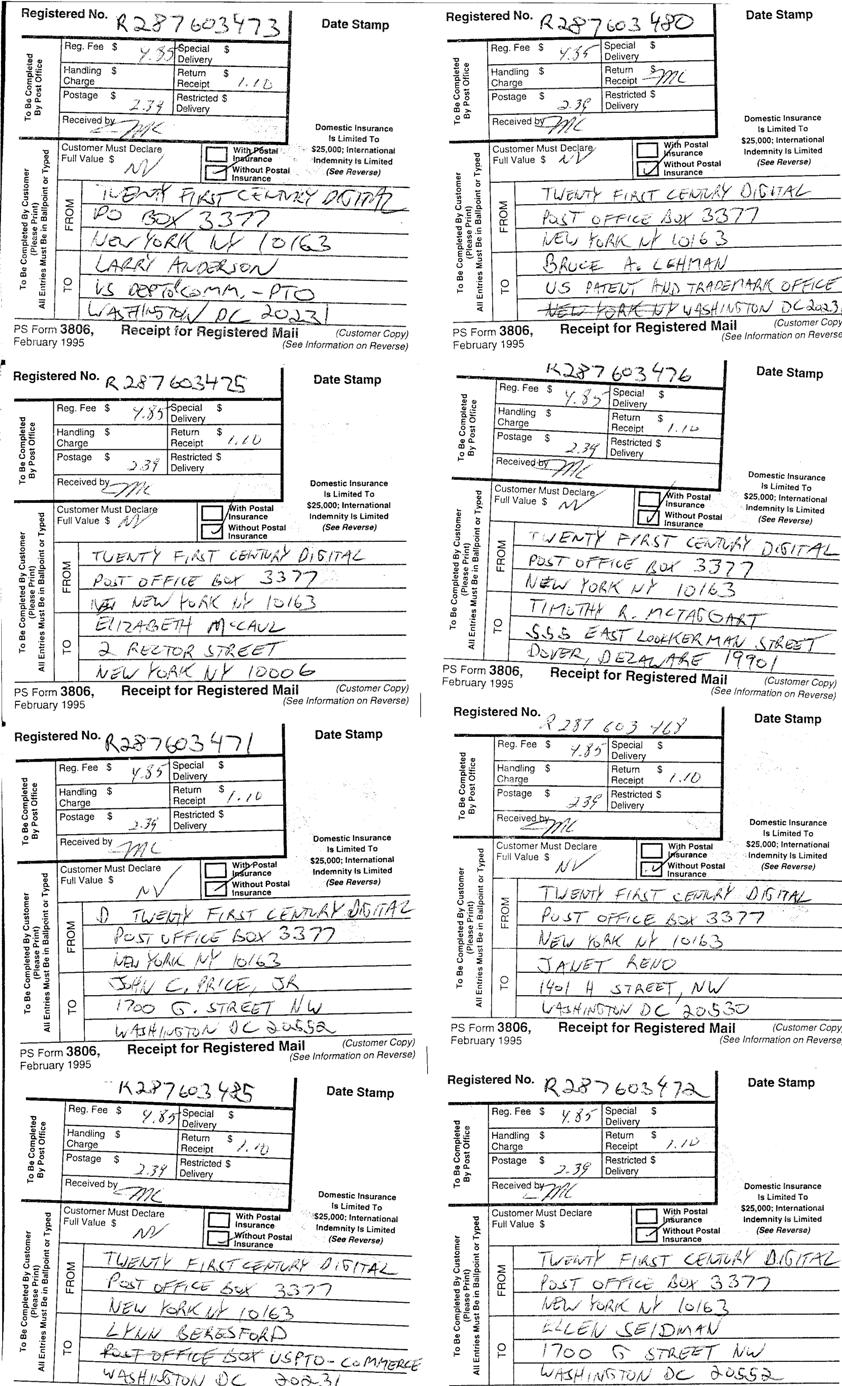 Registered No. R287603473 Date Stamp
Reg. Fee $ 4.85 Special Delivery $
Handling Charge $ Return Receipt $ 1.10
Postage $ 2.39 Restricted Delivery $
Received by MC
Domestic Insurance Is Limited To $25,000; International Indemnity Is Limited (See Reverse)
Customer Must Declare Full Value $ NV
With Postal Insurance
Without Postal Insurance
To Be Completed By Post Office
To Be Completed By Customer (Please Print) All Entries Must Be in Ballpoint or Typed
FROM
TWENTY FIRST CENTURY DIGITAL
PO BOX 3377
NEW YORK NY 10163
TO
LARRY ANDERSON
US DEPT COMM. - PTO
WASHINGTON DC 20231
PS Form 3806, February 1995 Receipt for Registered Mail (Customer Copy) (See Information on Reverse)
Registered No. R287603480 Date Stamp
Reg. Fee $ 4.85 Special Delivery $
Handling Charge $ Return Receipt $ MC
Postage $ 2.39 Restricted Delivery $
Received by MC
Domestic Insurance Is Limited To $25,000; International Indemnity Is Limited (See Reverse)
Customer Must Declare Full Value $ NV
With Postal Insurance
Without Postal Insurance
To Be Completed By Post Office
To Be Completed By Customer (Please Print) All Entries Must Be in Ballpoint or Typed
FROM
TWENTY FIRST CENTURY DIGITAL
POST OFFICE BOX 3377
NEW YORK NY 10163
TO
BRUCE A. LEHMAN
US PATENT AND TRADEMARK OFFICE
NEW YORK NY WASHINGTON DC 20231
PS Form 3806, February 1995 Receipt for Registered Mail (Customer Copy) (See Information on Reverse)
Registered No. R287603475 Date Stamp
Reg. Fee $ 4.85 Special Delivery $
Handling Charge $ Return Receipt $ 1.10
Postage $ 2.39 Restricted Delivery $
Received by MC
Domestic Insurance Is Limited To $25,000; International Indemnity Is Limited (See Reverse)
Customer Must Declare Full Value $ NV
With Postal Insurance
Without Postal Insurance
To Be Completed By Post Office
To Be Completed By Customer (Please Print) All Entries Must Be in Ballpoint or Typed
FROM
TWENTY FIRST CENTURY DIGITAL
POST OFFICE BOX 3377
NEW YORK NY 10163
TO
ELIZABETH McCAUL
2 RECTOR STREET
NEW YORK NY 10006
PS Form 3806, February 1995 Receipt for Registered Mail (Customer Copy) (See Information on Reverse)
R287603476 Date Stamp
Reg. Fee $ 4.85 Special Delivery $
Handling Charge $ Return Receipt $ 1.10
Postage $ 2.39 Restricted Delivery $
Received by MC
Domestic Insurance Is Limited To $25,000; International Indemnity Is Limited (See Reverse)
Customer Must Declare Full Value $ NV
With Postal Insurance
Without Postal Insurance
To Be Completed By Post Office
To Be Completed By Customer (Please Print) All Entries Must Be in Ballpoint or Typed
FROM
TWENTY FIRST CENTURY DIGITAL
POST OFFICE BOX 3377
NEW YORK NY 10163
TO
TIMOTHY R. MCTAGGART
555 EAST LOOKERMAN STREET
DOVER, DELAWARE 19901
PS Form 3806, February 1995 Receipt for Registered Mail (Customer Copy) (See Information on Reverse)
Registered No. R287603471 Date Stamp
Reg. Fee $ 4.85 Special Delivery $
Handling Charge $ Return Receipt $ 1.10
Postage $ 2.39 Restricted Delivery $
Received by MC
Domestic Insurance Is Limited To $25,000; International Indemnity Is Limited (See Reverse)
Customer Must Declare Full Value $ NV
With Postal Insurance
Without Postal Insurance
To Be Completed By Post Office
To Be Completed By Customer (Please Print) All Entries Must Be in Ballpoint or Typed
FROM
TWENTY FIRST CENTURY DIGITAL
POST OFFICE BOX 3377
NEW YORK NY 10163
TO
JOHN C. PRICE, JR
1700 G. STREET NW
WASHINGTON DC 20552
PS Form 3806, February 1995 Receipt for Registered Mail (Customer Copy) (See Information on Reverse)
R287 603 468 Date Stamp
Reg. Fee $ 4.85 Special Delivery $
Handling Charge $ Return Receipt $ 1.10
Postage $ 2.39 Restricted Delivery $
Received by MC
Domestic Insurance Is Limited To $25,000; International Indemnity Is Limited (See Reverse)
Customer Must Declare Full Value $ NV
With Postal Insurance
Without Postal Insurance
To Be Completed By Post Office
To Be Completed By Customer (Please Print) All Entries Must Be in Ballpoint or Typed
FROM
TWENTY FIRST CENTURY DIGITAL
POST OFFICE BOX 3377
NEW YORK NY 10163
TO
JANET RENO
1401 H STREET, NW
WASHINGTON DC 20530
PS Form 3806, February 1995 Receipt for Registered Mail (Customer Copy) (See Information on Reverse)
R287603485 Date Stamp
Reg. Fee $ 4.85 Special Delivery $
Handling Charge $ Return Receipt $ 1.10
Postage $ 2.39 Restricted Delivery $
Received by MC
Domestic Insurance Is Limited To $25,000; International Indemnity Is Limited (See Reverse)
Customer Must Declare Full Value $ NV
With Postal Insurance
Without Postal Insurance
To Be Completed By Post Office
To Be Completed By Customer (Please Print) All Entries Must Be in Ballpoint or Typed
FROM
TWENTY FIRST CENTURY DIGITAL
POST OFFICE BOX 3377
NEW YORK NY 10163
TO
LYNN BERESFORD
POST OFFICE BOX USPTO - COMMERCE
WASHINGTON DC 20231
Registered No. R287603472 Date Stamp
Reg. Fee $ 4.85 Special Delivery $
Handling Charge $ Return Receipt $ 1.10
Postage $ 2.39 Restricted Delivery $
Received by MC
Domestic Insurance Is Limited To $25,000; International Indemnity Is Limited (See Reverse)
Customer Must Declare Full Value $ NV
With Postal Insurance
Without Postal Insurance
To Be Completed By Post Office
To Be Completed By Customer (Please Print) All Entries Must Be in Ballpoint or Typed
FROM
TWENTY FIRST CENTURY DIGITAL
POST OFFICE BOX 3377
NEW YORK NY 10163
TO
ELLEN SEIDMAN
1700 G STREET NW
WASHINGTON DC 20552